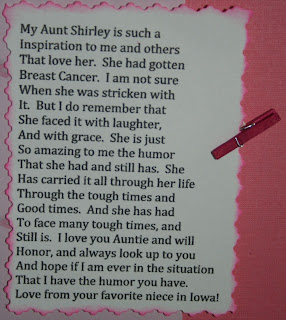 My Aunt Shirley is such a
Inspiration to me and others
That love her.  She had gotten
Breast Cancer.  I am not sure
When she was stricken with
It.  But I do remember that
She faced it with laughter,
And with grace.  She is just
So amazing to me the humor
That she had and still has.  She
Has carried it all through her life
Through the tough times and
Good times.  And she has had
To face many tough times, and
Still is.  I love you Auntie and will
Honor, and always look up to you
And hope if I am ever in the situation
That I have the humor you have.
Love from your favorite niece in Iowa!